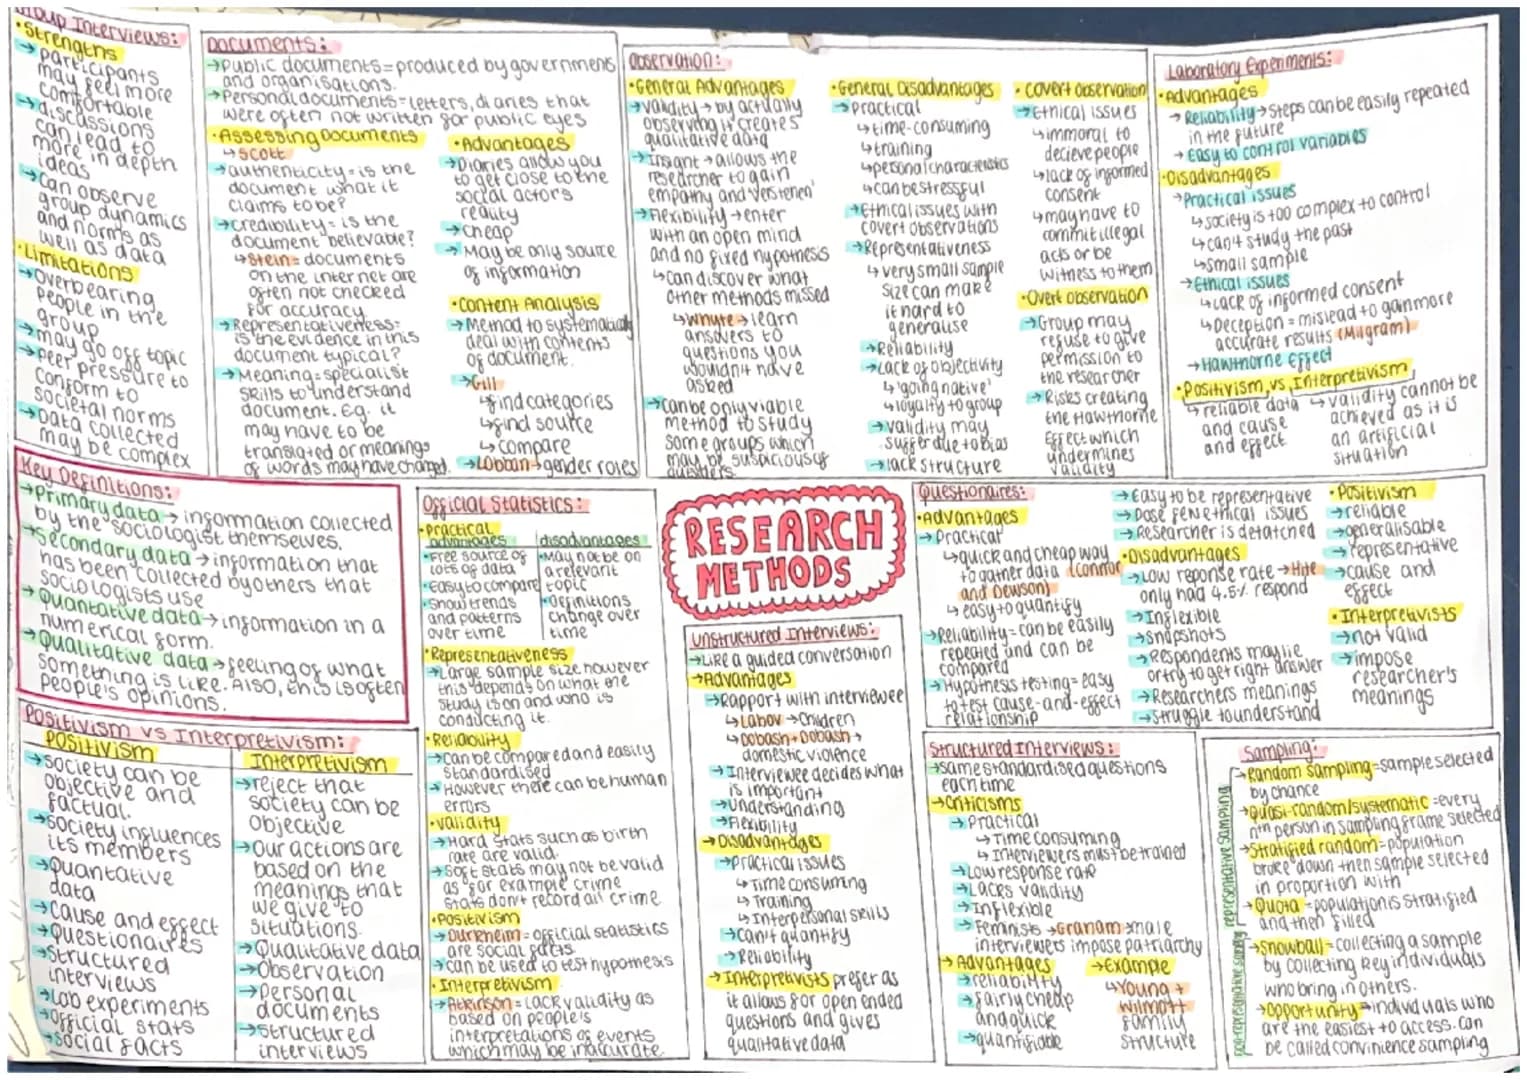 Group Interviews:
•Strengths
→participants
may feel more
comfortable
→discussions
can lead to
more in depth
ideas
→can observe
group dynamics
and norms as
well as data
•Limitations
→Overbearing
people in the
group
→may go off topic
→peer pressure to
conform to
societal norms
→Data collected
may be complex
Documents:
→public documents=produced by government
and organisations.
→Personal documents=letters, diaries that
were often not written for public eyes
•Assessing Documents
↳Scott
→authenticity=is the
document what it
claims to be?
→credibility=is the
document believable?
↳Stein=documents
on the internet are
often not checked
for accuracy
→Representativeness=
is the evidence in this
document typical?
→Meaning=specialist
skills to understand
document. Eg. it
may have to be
translated or meanings
of words may have changed.
•Advantages
→Diaries allow you
to get close to the
social actors
reality
→cheap
→May be only source
of information
•Content Analysis
→Method to systematically
deal with contents
of document.
→Gill
↳find categories
↳find source
↳compare
→Lobban→gender roles
Observation:
•General Advantages
→validity→by actually
observing it creates
qualitative data
→Insight→allows the
researcher to gain
empathy and 'verstehen'
→Flexibility→enter
with an open mind
and no fixed hypothesis
↳can discover what
other methods missed
↳Whyte→learn
answers to
questions you
wouldn't have
asked
→can be only viable
method to study
some groups which
may be suspicious of
outsiders
•General Disadvantages
→practical
↳time-consuming
↳training
↳personal characteristics
↳can be stressful
→Ethical issues with
covert observations
→Representativeness
↳very small sample
size can make
it hard to
generalise
→Reliability
→Lack of objectivity
↳'going native'
↳loyalty to group
→validity may
suffer due to bias
→lack structure
•Covert observation
→Ethical issues
↳immoral to
decieve people
↳lack of informed
consent
↳may have to
commit illegal
acts or be
witness to them
•Overt observation
→Group may
refuse to give
permission to
the researcher
→Risks creating
the Hawthorne
Effect which
undermines
validity
Laboratory Experiments:
•Advantages
→Reliability→Steps can be easily repeated
in the future
→Easy to control variables
•Disadvantages
→Practical issues
↳society is too complex to control
↳can't study the past
↳small sample
→Ethical issues
↳Lack of informed consent
↳Deception=mislead to gain more
accurate results (Milgram)
→Hawthorne Effect
•Positivism vs Interpretivism
↳reliable data
and cause
and effect
↳validity cannot be
achieved as it is
an artificial
situation
Key Definitions:
→Primary data→information collected
by the sociologist themselves.
→Secondary data→information that
has been collected by others that
sociologists use
→Quantative data→information in a
numerical form.
→Qualitative data→feeling of what
something is like. Also, this is often
people's opinions.
Official Statistics:
•Practical
advantages
•Free source of
lots of data
•Easy to compare
•Show trends
and patterns
over time
disadvantages
•May not be on
a relevant
topic
•Definitions
change over
time
•Representativeness
→Large sample size however
this depends on what the
study is on and who is
conducting it.
•Reliability
→can be compared and easily
standardised
→However there can be human
errors
•Validity
→Hard stats such as birth
rate are valid.
→Soft stats may not be valid
as for example crime
stats don't record all crime
•Positivism
→Durkheim=official statistics
are social facts
→can be used to test hypothesis
•Interpretivism
→Atkinson=Lack validity as
based on people's
interpretations of events
which may be inaccurate.
RESEARCH
METHODS
Questionaires:
•Advantages
→Practical
↳quick and cheap way
to gather data (Connor
and Dewson)
↳easy to quantify
→Reliability=can be easily
repeated and can be
compared
→Hypothesis testing=easy
to test cause-and-effect
relationship
→Easy to be representative
→Pose few ethical issues
→Researcher is detatched
•Disadvantages
→Low reponse rate→Hite
only had 4.5% respond
→Inflexible
→snapshots
→Respondents may lie
or try to get right answer
→Researchers meanings
→Struggle to understand
•Positivism
→reliable
→generalisable
→representative
→cause and
effect
•Interpretivists
→not valid
→impose
researcher's
meanings
Positivism vs Interpretivism:
Positivism
→society can be
objective and
factual.
→society influences
its members
→Quantative
data
→Cause and effect
→Questionaires
→Structured
interviews
→Lab experiments
→Official stats
→Social facts
Interpretivism
→reject that
society can be
objective
→Our actions are
based on the
meanings that
we give to
situations.
→Qualitative data
→Observation
→Personal
documents
→Structured
interviews
Unstructured Interviews:
→Like a guided conversation
→Advantages
→Rapport with interviewee
↳Labov→children
↳Dobash+Dobash→
domestic violence
→Interviewee decides what
is important
→Understanding
→Flexibility
→Disadvantages
→Practical issues
↳Time consuming
↳Training
↳Interpersonal skills
→Can't quantify
→Reliability
→Interpretivists prefer as
it allows for open ended
questions and gives
qualitative data
Structured Interviews:
→same standardised questions
each time
→Criticisms
→Practical
↳Time consuming
↳Interviewers must be trained
→Low response rate
→Lacks validity
→Inflexible
→Feminists→Graham→male
interviewers impose patriarchy
→Advantages
→reliability
→fairly cheap
and quick
→quantifiable
→Example
↳Young+
Wilmott
family
structure
Sampling:
representative sampling
→Random sampling=sample selected
by chance
→Quasi-random/systematic=every
nth person in sampling frame selected
→Stratified random=population
broke down then sample selected
in proportion with
→Quota=population is stratified
and then filled
→Snowball=collecting a sample
by collecting key individuals
who bring in others.
→Opportunity=individuals who
are the easiest to access. can
be called convinience sampling